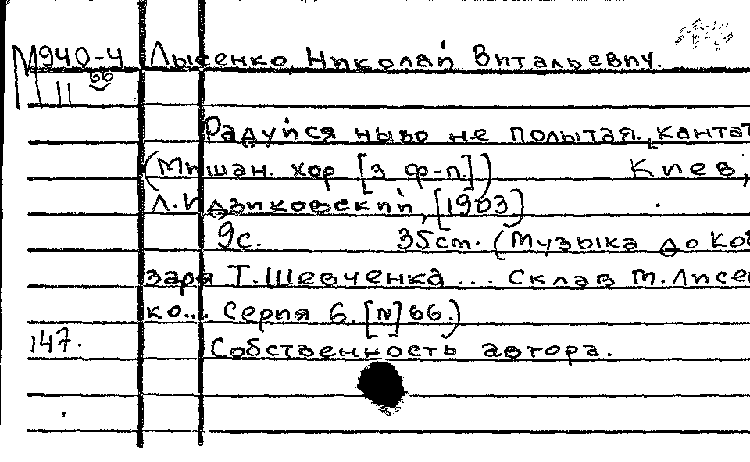 М940-4 Лысенко, Николай Витальевич.
66
11
Радуйся ныво не полытая. Кантат
(Мишан. хор [з ф-п.]) Киев,
Л. Идзиковский, [1903]
9с. 35ст. (Музыка до Коб
заря Т. Шевченка... Склав М. Лисен
ко... Серия 6. [N] 66.)
147. Собственность автора.